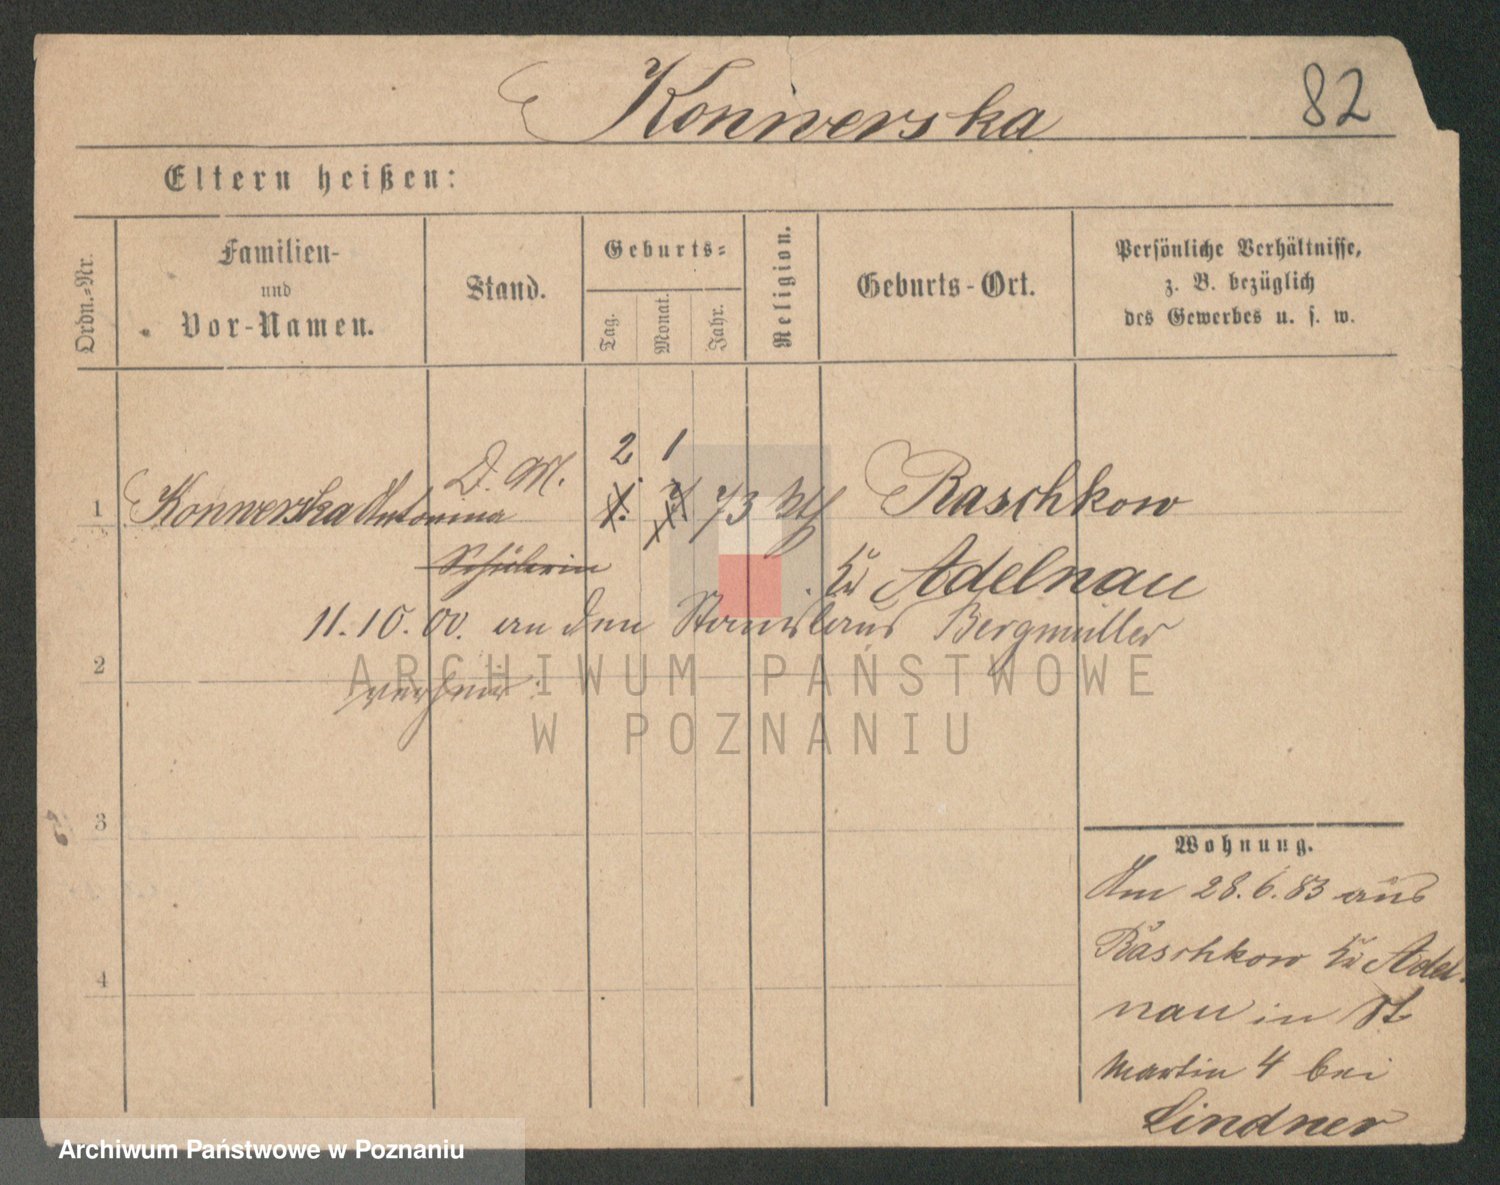 Konwerska 82
Eltern heißen:
Ordn.-Nr.
Familien-
und
Vor-Namen.
Stand.
Geburts-
Tag.
Monat.
Jahr.
Religion.
Geburts-Ort.
Persönliche Verhältnisse,
z. B. bezüglich
des Gewerbes u. s. w.
2 1
D. M.
1 Konwerska Antonina 73 kth Raschkow
Schülerin Kr Adelnau
11.10.00. an den Stanislaus Bergmüller
2 verheir.
3
4
Wohnung.
Am 28.6.83 aus
Raschkow Kr Adel-
nau in St
Martin 4 bei
Lindner
ARCHIWUM PAŃSTWOWE
W POZNANIU
Archiwum Państwowe w Poznaniu